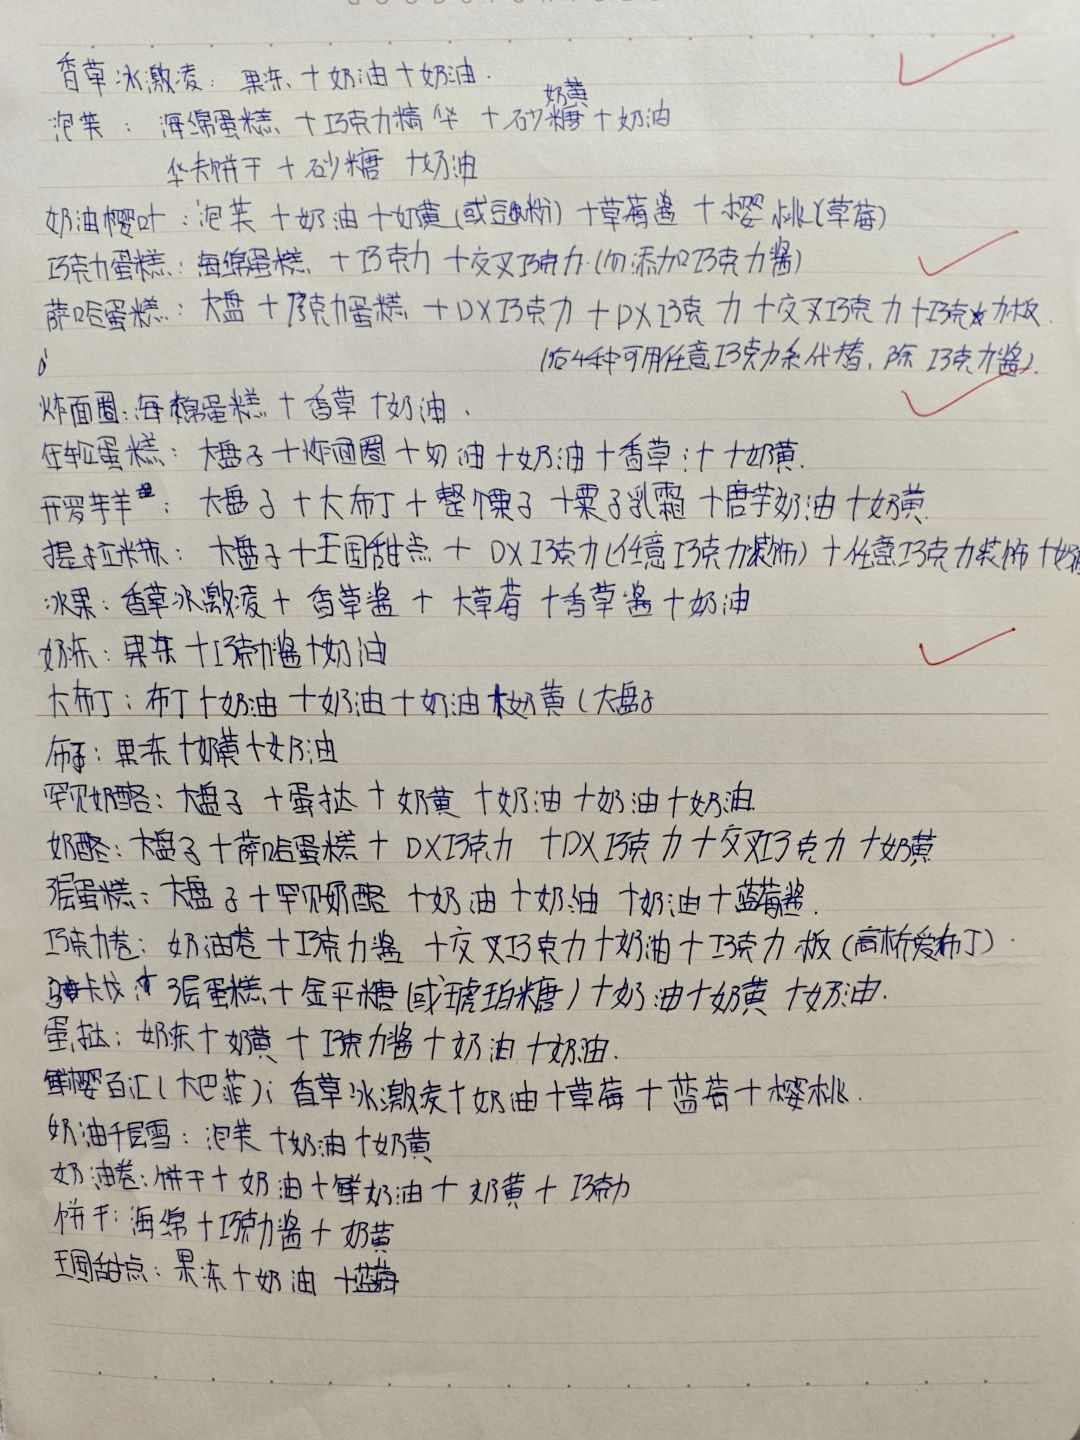 香草冰激凌：果冻+奶油+奶油.
奶黄
泡芙：海绵蛋糕+巧克力精华+砂糖+奶油
华夫饼干+砂糖+奶油
奶油樱叶：泡芙+奶油+奶黄(或豆奶粉)+草莓酱+樱桃(草莓)
巧克力蛋糕：海绵蛋糕+巧克力+交叉巧克力(勿添加巧克力酱)
萨哈蛋糕：大盘+巧克力蛋糕+DX巧克力+DX巧克力+交叉巧克力+巧克力板.
(后4种可用任意巧克力系代替，除巧克力酱).
炸面圈：海棉蛋糕+香草+奶油.
年轮蛋糕：大盘子+炸面圈+奶油+奶油+香草汁+奶黄.
开罗芋羊：大盘子+大布丁+整个栗子+栗子乳霜+唐芋奶油+奶黄.
提拉米苏：大盘子+王国甜点+DX巧克力(任意巧克力装饰)+任意巧克力装饰+奶
冰果：香草冰激凌+香草酱+大草莓+香草酱+奶油
奶冻：果冻+巧克力酱+奶油
大布丁：布丁+奶油+奶油+奶油+奶黄(大盘子
布丁：果冻+奶黄+奶油
罕见奶酪：大盘子+蛋挞+奶黄+奶油+奶油+奶油.
奶酪：大盘子+萨哈蛋糕+DX巧克力+DX巧克力+交叉巧克力+奶黄
3层蛋糕：大盘子+罕见奶酪+奶油+奶油+奶油+蓝莓酱.
巧克力卷：奶油卷+巧克力酱+交叉巧克力+奶油+巧克力板(高桥爱布丁).
卡戊：3层蛋糕+金平糖(或琥珀糖)+奶油+奶黄+奶油.
蛋挞：奶冻+奶黄+巧克力酱+奶油+奶油.
鲜樱百汇(大巴菲)；香草冰激凌+奶油+草莓+蓝莓+樱桃.
奶油千层雪：泡芙+奶油+奶黄
奶油卷：饼干+奶油+鲜奶油+奶黄+巧克力
饼干：海绵+巧克力酱+奶黄
王国甜点：果冻+奶油+蓝莓